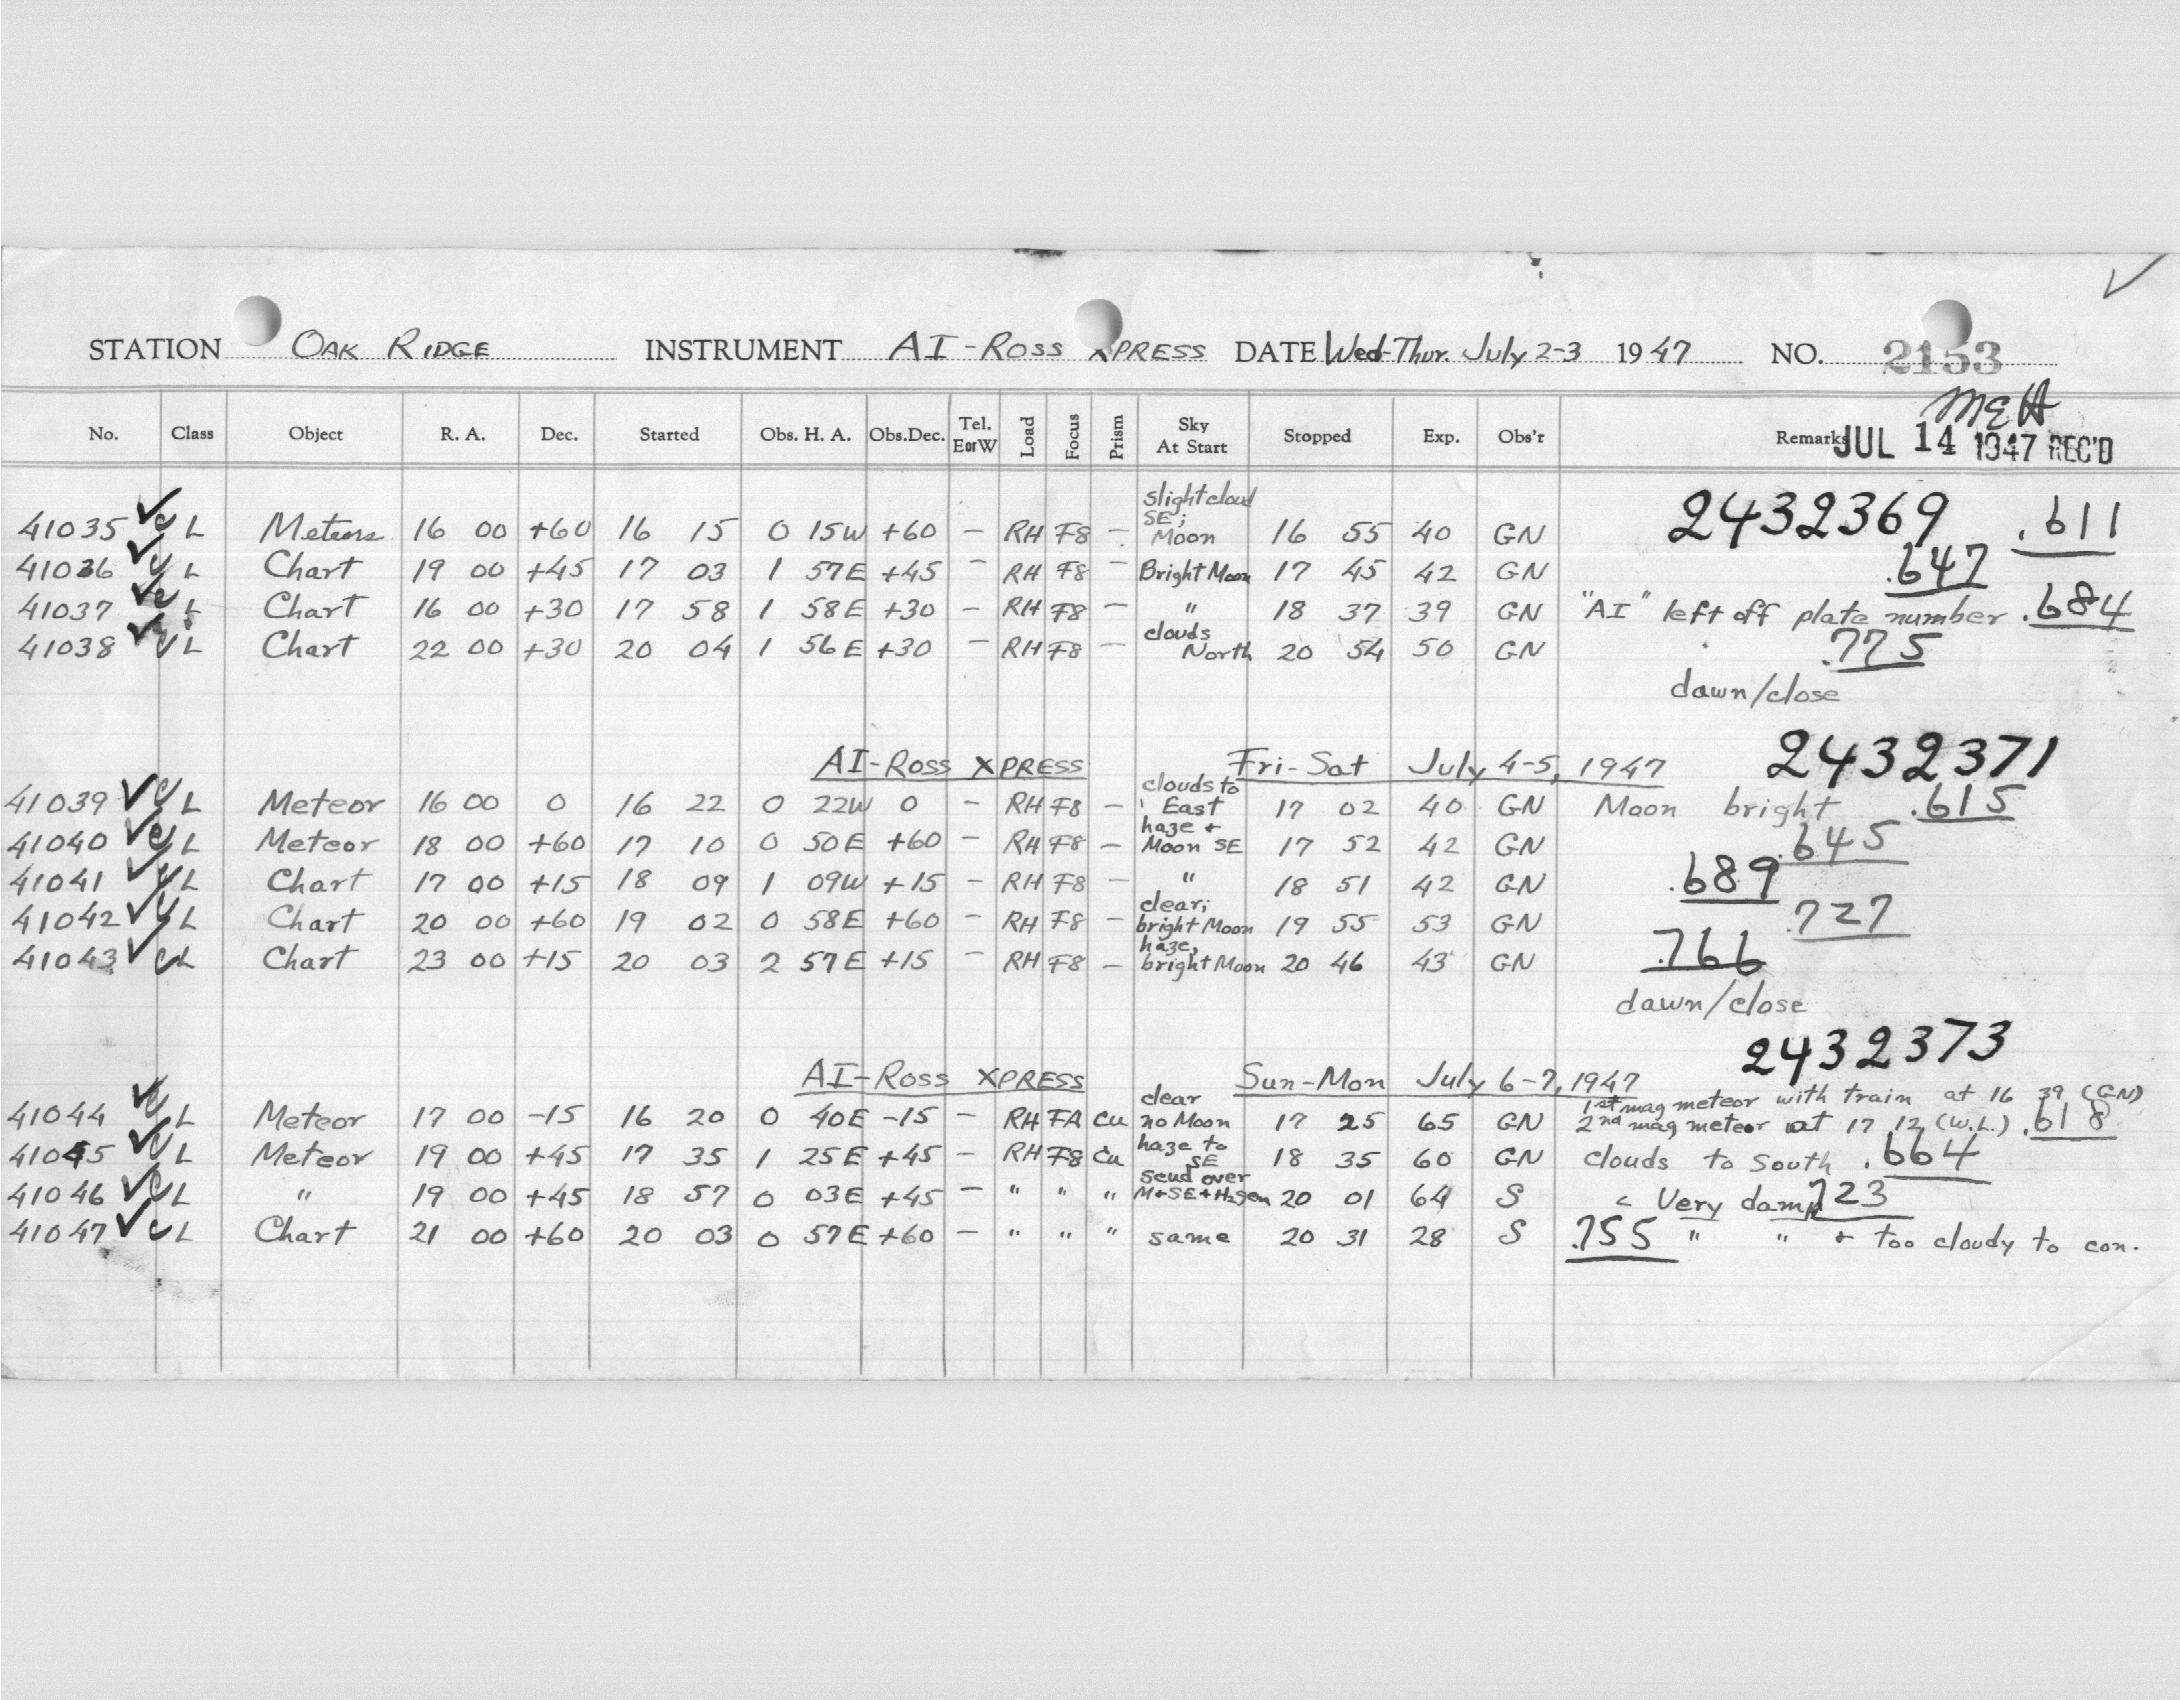 STATION OAK RIDGE INSTRUMENT AI-ROSS XPRESS DATE Wed-Thur. July 2-3 1947 NO. 2153
MEH
No. Class Object R. A. Dec. Started Obs. H. A. Obs.Dec. Tel. EorW Load Focus Prism Sky At Start Stopped Exp. Obs'r Remarks JUL 14 1947 REC'D
41035 L Meteors 16 00 +60 16 15 0 15W +60 - RH F8 - slight cloud SE; Moon 16 55 40 GN 2432369 .611
41036 L Chart 19 00 +45 17 03 1 57E +45 - RH F8 - Bright Moon 17 45 42 GN .647
41037 L Chart 16 00 +30 17 58 1 58E +30 - RH F8 - " 18 37 39 GN "AI" left off plate number .684
41038 L Chart 22 00 +30 20 04 1 56E +30 - RH F8 - clouds North 20 54 50 GN .775
dawn/close
AI-ROSS XPRESS Fri-Sat July 4-5, 1947 2432371
41039 L Meteor 16 00 0 16 22 0 22W 0 - RH F8 - clouds to East 17 02 40 GN Moon bright .615
41040 L Meteor 18 00 +60 17 10 0 50E +60 - RH F8 - haze + Moon SE 17 52 42 GN .645
41041 L Chart 17 00 +15 18 09 1 09W +15 - RH F8 - " 18 51 42 GN .689
41042 L Chart 20 00 +60 19 02 0 58E +60 - RH F8 - clear; bright Moon 19 55 53 GN .727
41043 L Chart 23 00 +15 20 03 2 57E +15 - RH F8 - haze, bright Moon 20 46 43 GN .766
dawn/close
2432373
AI-ROSS XPRESS Sun-Mon July 6-7, 1947
1st mag meteor with train at 16 39 (GN)
41044 L Meteor 17 00 -15 16 20 0 40E -15 - RH FA Cu clear no Moon 17 25 65 GN 2nd mag meteor at 17 12 (W.L.) .618
41045 L Meteor 19 00 +45 17 35 1 25E +45 - RH F8 Cu haze to SE 18 35 60 GN clouds to South .664
41046 L " 19 00 +45 18 57 0 03E +45 - " " " over 20 01 64 S Very damp .723
41047 L Chart 21 00 +60 20 03 0 57E +60 - " " " same 20 31 28 S .755 " " + too cloudy to con.